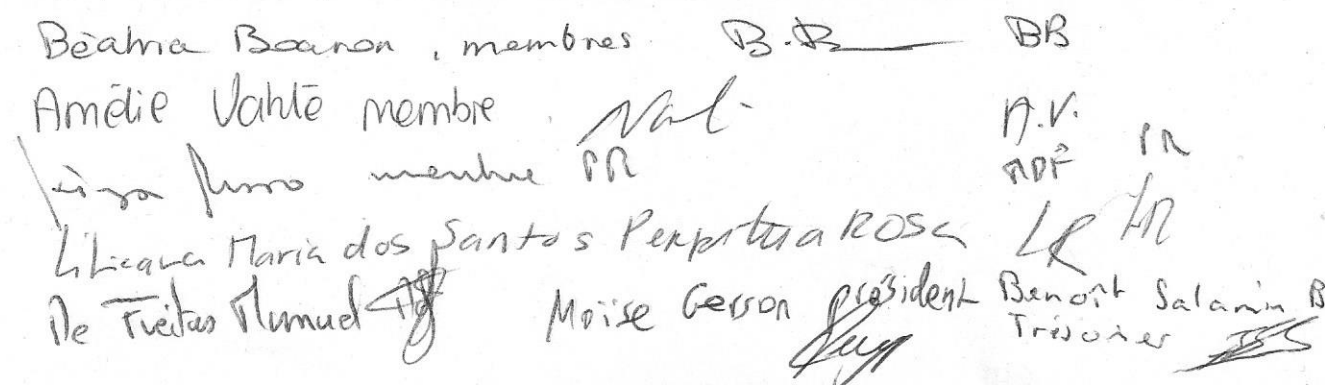 Béatrice Boaron, membres B.B BB
Amélie Vahlé membre A.V.
membre PR ADF PR
Liliana Maria dos Santos Perpetua Rosa LR LR
De Freitas Manuel Moïse Gerson président Benoît Salamin B
Trésorier